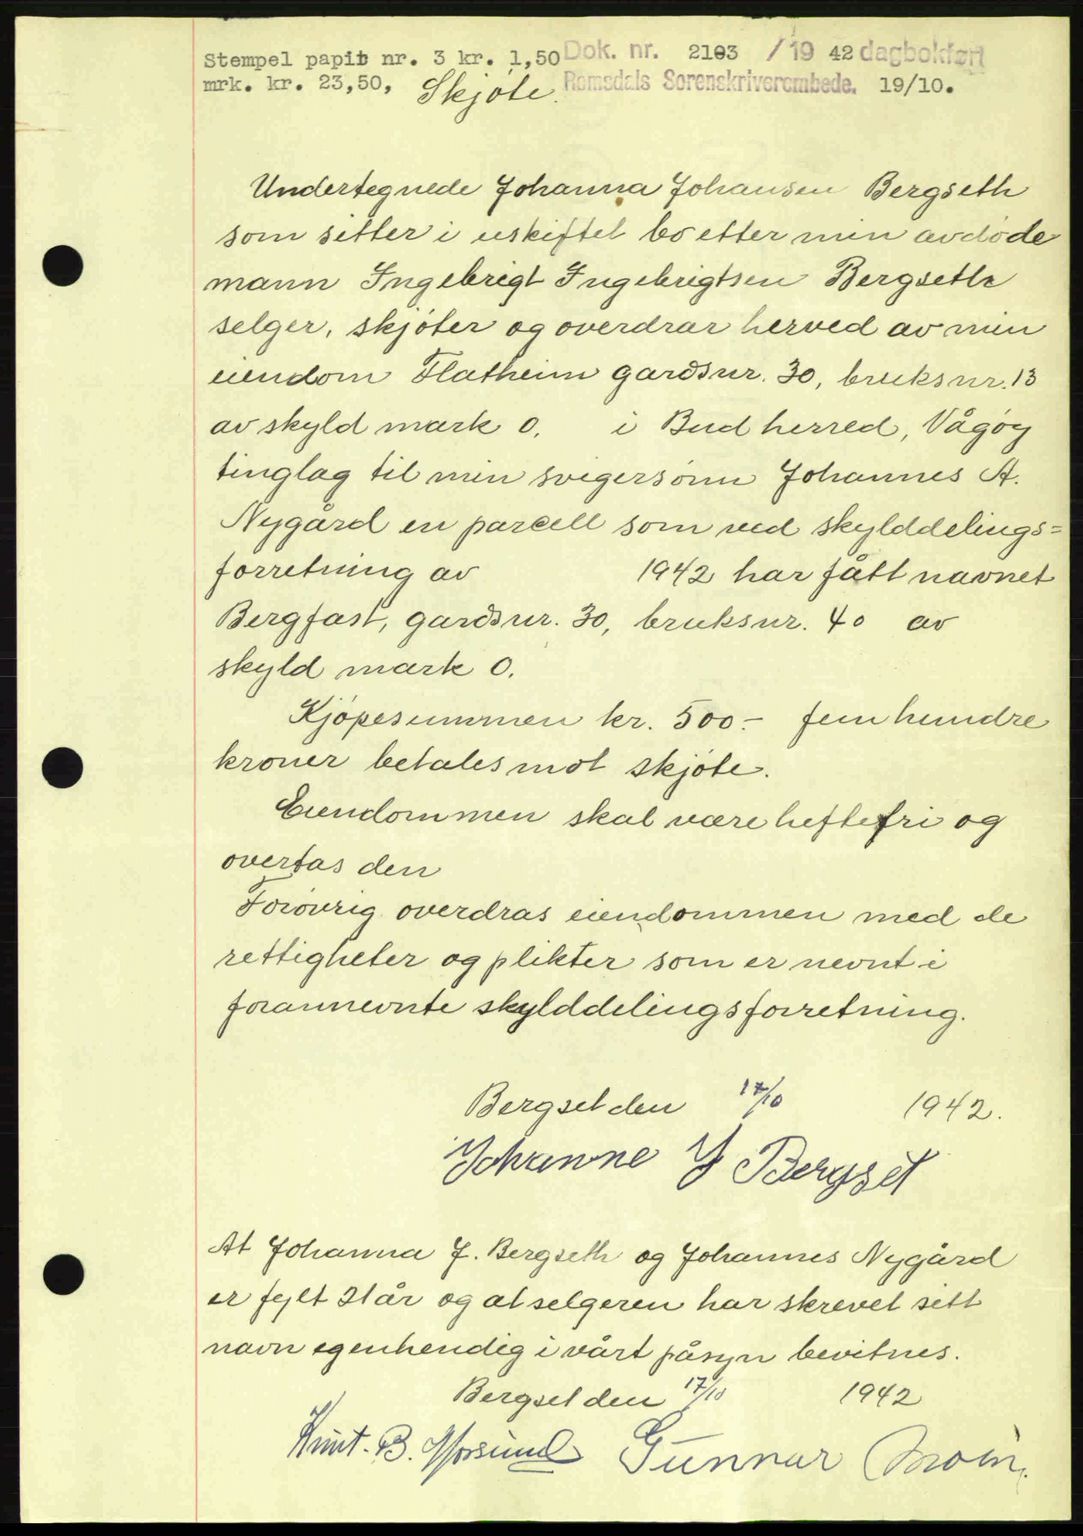 Stempel papir nr. 3 kr. 1,50 Dok. nr. 2103 / 19 42 dagbokført
mrk. kr. 23,50, Skjøte. Romsdals Sorenskriverembede. 19/10.
Undertegnede Johanna Johansen Bergseth
som sitter i uskiftet bo etter min avdøde
mann Ingebrigt Ingebrigtsen Bergseth
selger, skjøter og overdrar herved av min
eiendom Flatheim gardsnr. 30, bruksnr. 13
av skyld mark 0, i Bud herred, Vågøy
tinglag til min svigersønn Johannes A.
Nygård en parcell som ved skylddelings=
forretning av 1942 har fått navnet
Bergfast, gardsnr. 30, bruksnr. 40 av
skyld mark 0,
Kjøpesummen kr. 500.- fem hundre
kroner betales mot skjøte.
Eiendommen skal være heftefri og
overtas den
Forøvrig overdras eiendommen med de
rettigheter og plikter som er nevnt i
forannevnte skylddelingsforretning.
Bergset den 17/10 1942.
Johanne J Bergset
At Johanna J. Bergseth og Johannes Nygård
er fylt 21 år og at selgeren har skrevet sitt
navn egenhendig i vårt påsyn bevitnes.
Bergset den 17/10 1942
Knut. B. Gunnar